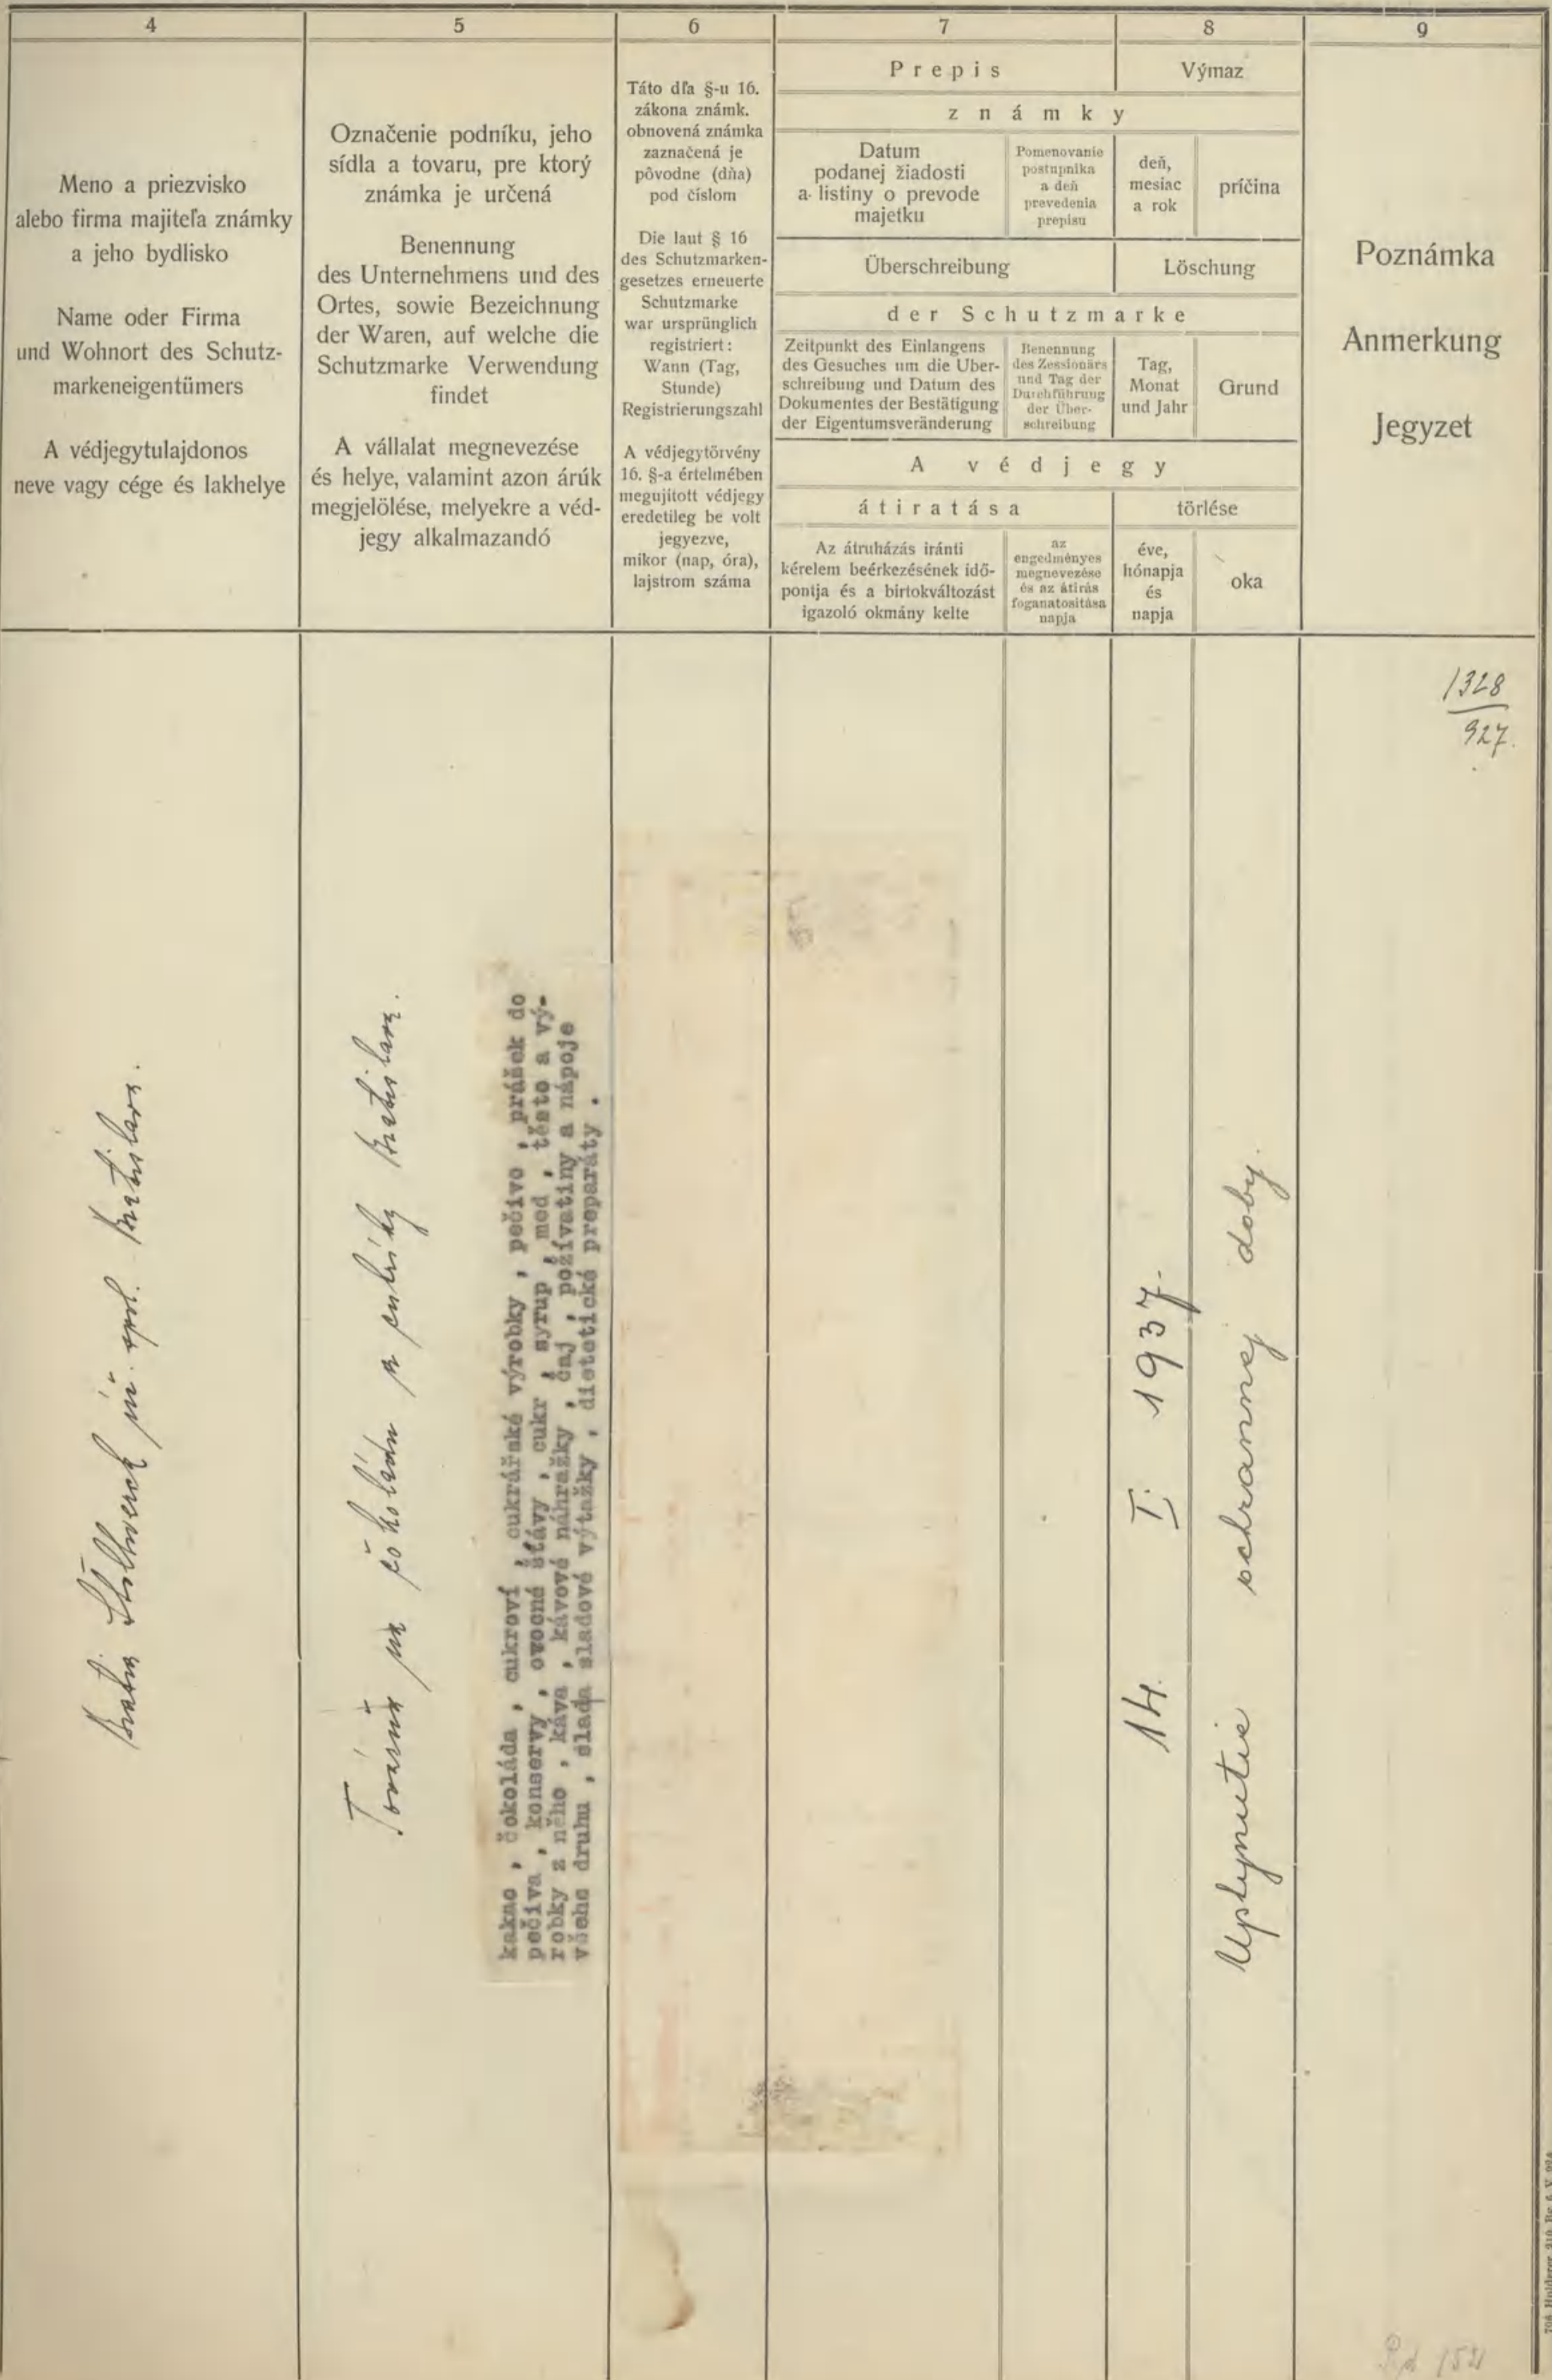 4
5
6
7
8
9
Meno a priezvisko
alebo firma majiteľa známky
a jeho bydlisko
Name oder Firma
und Wohnort des Schutz-
markeneigentümers
A védjegytulajdonos
neve vagy cége és lakhelye
Označenie podníku, jeho
sídla a tovaru, pre ktorý
známka je určená
Benennung
des Unternehmens und des
Ortes, sowie Bezeichnung
der Waren, auf welche die
Schutzmarke Verwendung
findet
A vállalat megnevezése
és helye, valamint azon árúk
megjelölése, melyekre a véd-
jegy alkalmazandó
Táto dľa §-u 16.
zákona známk.
obnovená známka
zaznačená je
pôvodne (dňa)
pod číslom
Die laut § 16
des Schutzmarken-
gesetzes erneuerte
Schutzmarke
war ursprünglich
registriert:
Wann (Tag,
Stunde)
Registrierungszahl
A védjegytörvény
16. §-a értelmében
megujított védjegy
eredetileg be volt
jegyezve,
mikor (nap, óra),
lajstrom száma
Prepis
Výmaz
známky
Datum
podanej žiadosti
a listiny o prevode
majetku
Pomenovanie
postupníka
a deň
prevedenia
prepisu
deň,
mesiac
a rok
príčina
Überschreibung
Löschung
der Schutzmarke
Zeitpunkt des Einlangens
des Gesuches um die Über-
schreibung und Datum des
Dokumentes der Bestätigung
der Eigentumsveränderung
Benennung
des Zessionärs
und Tag der
Durchführung
der Über-
schreibung
Tag,
Monat
und Jahr
Grund
A védjegy
átiratása
törlése
Az átruházás iránti
kérelem beérkezésének idő-
pontja és a birtokváltozást
igazoló okmány kelte
az
engedményes
megnevezése
és az átírás
foganatosítása
napja
éve,
hónapja
és
napja
oka
Poznámka
Anmerkung
Jegyzet
1328
927.
Bratia Stollwerck úč. spol. Bratislava.
Továrna na čokoládu a cukríky Bratislava.
kakao , čokoláda , cukroví , cukrářské výrobky , pečivo , prášek do
pečiva , konservy , ovocné šťávy , cukr , syrup , med , těsto a vý-
robky z něho , káva , kávové náhražky , čaj , poživatiny a nápoje
všeho druhu , slad a sladové výtažky , dietetické preparáty .
14. I. 1937.
Uplynutie ochrannej doby.